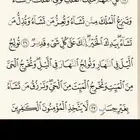 وَتَنزِعُ الْمُلْكَ مِمَّن تَشَاءُ وَتُعِزُّ مَن تَشَاءُ وَتُذِلُّ مَن
تَشَاءُ بِيَدِكَ الْخَيْرُ إِنَّكَ عَلَىٰ كُلِّ شَيْءٍ قَدِيرٌ ٢٦ تُولِجُ
اللَّيْلَ فِي النَّهَارِ وَتُولِجُ النَّهَارَ فِي اللَّيْلِ وَتُخْرِجُ الْحَيَّ
مِنَ الْمَيِّتِ وَتُخْرِجُ الْمَيِّتَ مِنَ الْحَيِّ وَتَرْزُقُ مَن تَشَاءُ
بِغَيْرِ حِسَابٍ ٢٧ لَّا يَتَّخِذِ الْمُؤْمِنُونَ الْكَافِرِينَ